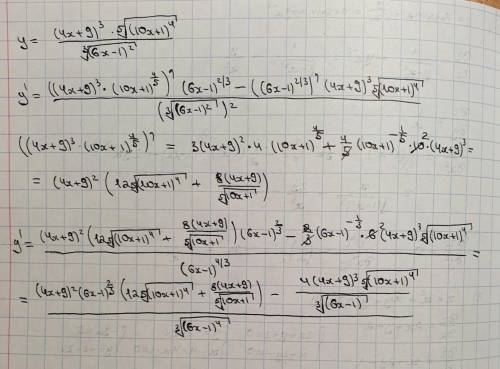 y = \frac{(4x+9)^3 \cdot \sqrt[5]{(10x+1)^4}}{\sqrt[3]{(6x-1)^2}}
y' = \frac{((4x+9)^3 \cdot (10x+1)^{\frac{4}{5}})' (6x-1)^{2/3} - ((6x-1)^{2/3})' (4x+9)^3 \sqrt[5]{(10x+1)^4}}{(\sqrt[3]{(6x-1)^2})^2}
((4x+9)^3 \cdot (10x+1)^{\frac{4}{5}})' = 3(4x+9)^2 \cdot 4 (10x+1)^{\frac{4}{5}} + \frac{4}{5} (10x+1)^{-\frac{1}{5}} \cdot 10^2 \cdot (4x+9)^3 =
= (4x+9)^2 (12\sqrt[5]{(10x+1)^4} + \frac{8(4x+9)}{\sqrt[5]{10x+1}})
y' = \frac{(4x+9)^2 (12\sqrt[5]{(10x+1)^4} + \frac{8(4x+9)}{\sqrt[5]{10x+1}}) (6x-1)^{\frac{2}{3}} - \frac{2}{3} (6x-1)^{-\frac{1}{3}} \cdot 6^2 (4x+9)^3 \sqrt[5]{(10x+1)^4}}{(6x-1)^{4/3}} =
= \frac{(4x+9)^2 (6x-1)^{\frac{2}{3}} (12\sqrt[5]{(10x+1)^4} + \frac{8(4x+9)}{\sqrt[5]{10x+1}}) - \frac{4(4x+9)^3 \sqrt[5]{(10x+1)^4}}{\sqrt[3]{(6x-1)}}}{\sqrt[3]{(6x-1)^4}}